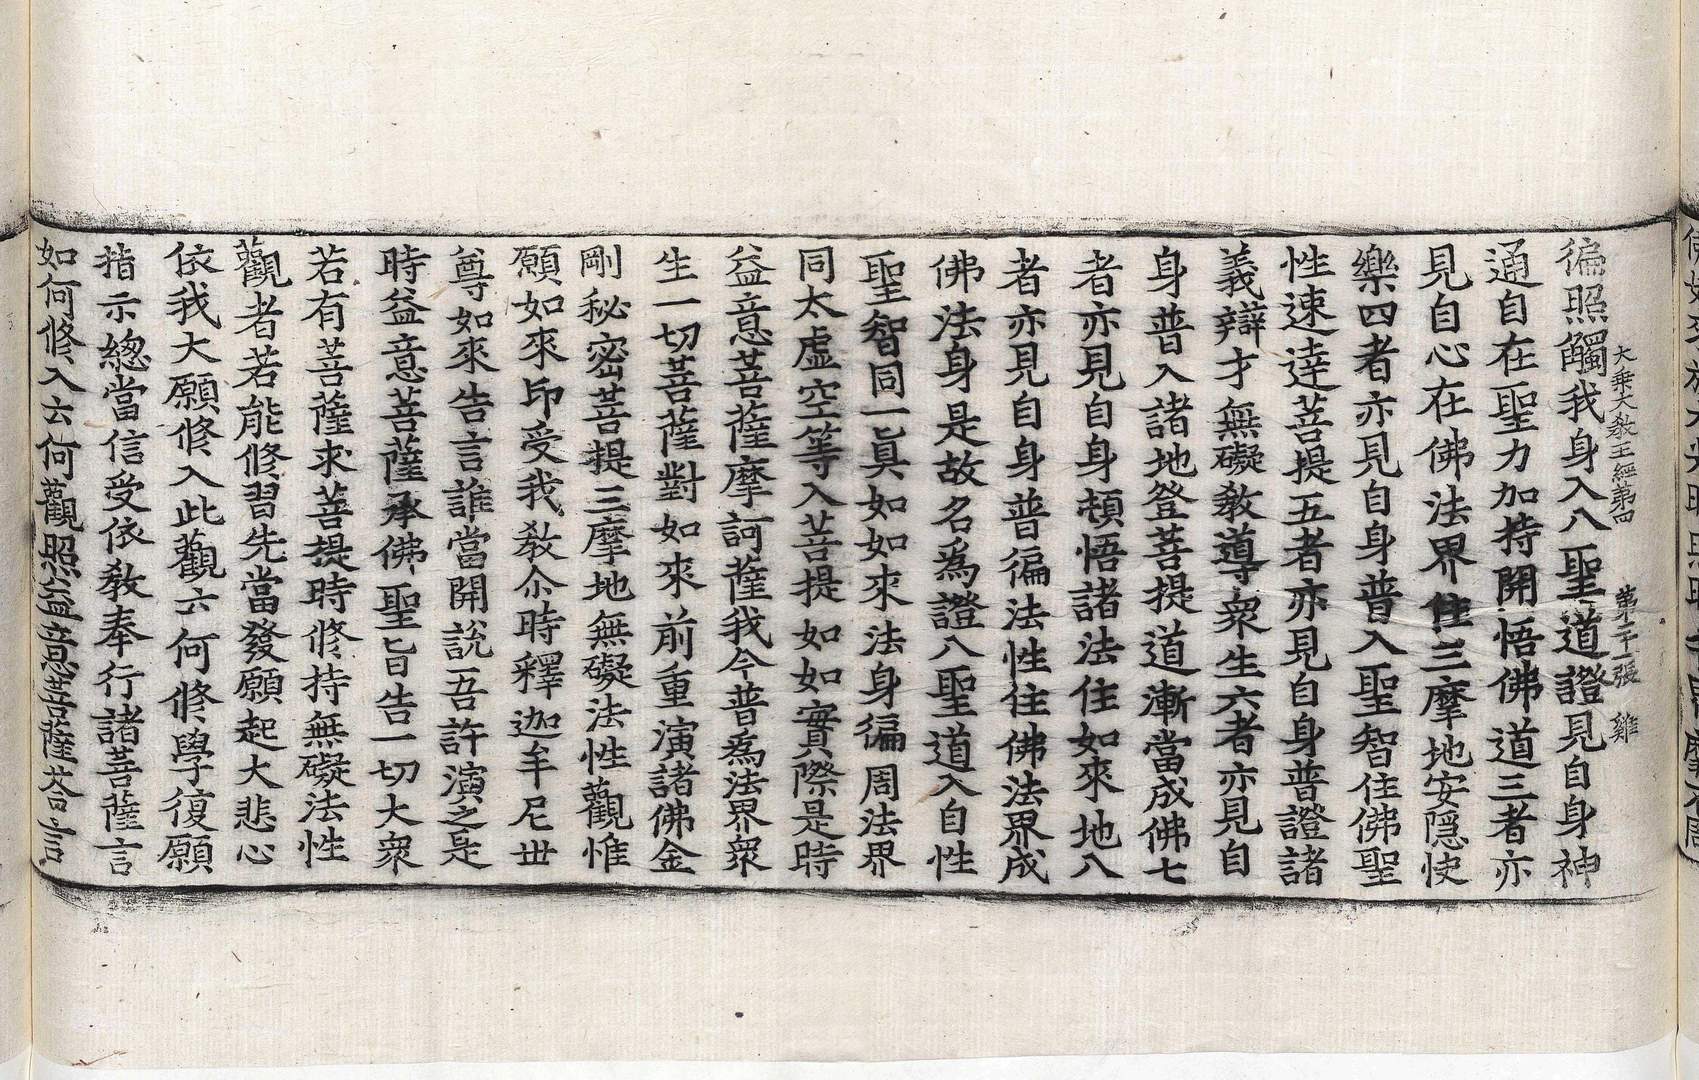 大乗大教王經第四 第二十一張 雞
徧照觸我身入八聖道證見自身神
通自在聖力加持開悟佛道三者亦
見自心在佛法界住三摩地安隱快
樂四者亦見自身普入聖智住佛聖
性速達菩提五者亦見自身普證諸
義辯才無礙教導衆生六者亦見自
身普入諸地登菩提道漸當成佛七
者亦見自身頓悟諸法住如來地八
者亦見自身普徧法性住佛法界成
佛法身是故名為證八聖道入自性
聖智同一真如如來法身徧周法界
同太虛空等入菩提如如實際是時
益意菩薩摩訶薩我今普為法界衆
生一切菩薩對如來前重演諸佛金
剛秘密菩提三摩地無礙法性觀惟
願如來印受我教尒時釋迦牟尼世
尊如來告言誰當開說吾許演之是
時益意菩薩承佛聖旨告一切大衆
若有菩薩求菩提時修持無礙法性
觀者若能修習先當發願起大悲心
依我大願修入此觀云何修學復願
指示總當信受依教奉行諸菩薩言
如何修入云何觀照益意菩薩荅言